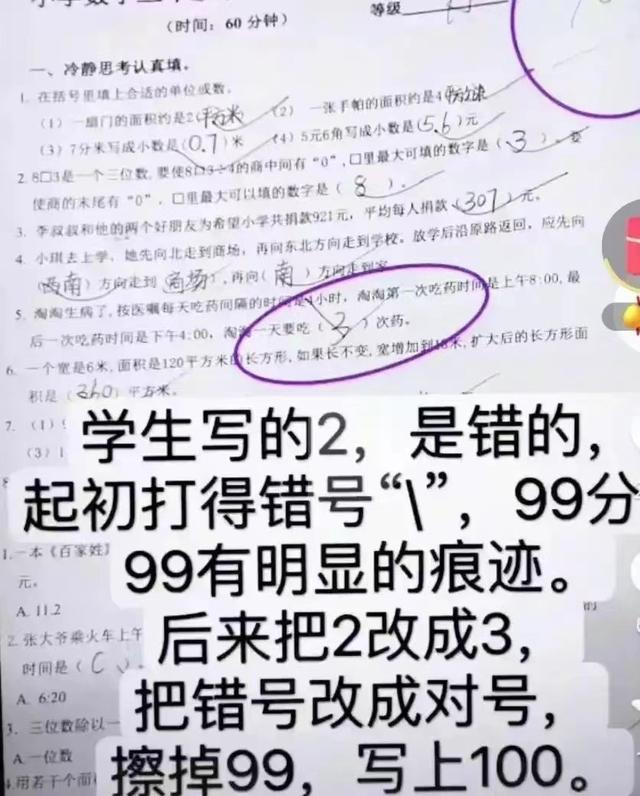 (时间：60分钟)
等级
一、冷静思考认真填。
1. 在括号里填上合适的单位或数。
(1) 一扇门的面积约是2(平方米
(2) 一张手帕的面积约是4(平方分米
(3) 7分米写成小数是(0.7)米
(4) 5元6角写成小数是(5.6)元
2. 8□3是一个三位数,要使8□3÷4的商中间有“0”,□里最大可填的数字是(3)。要
使商的末尾有“0”,□里最大可以填的数字是(8)。
3. 李叔叔和他的两个好朋友为希望小学共捐款921元,平均每人捐款(307)元。
4. 小琪去上学，她先向北走到商场，再向东北方向走到学校。放学后沿原路返回，应先向
(西南)方向走到(商场),再向(南)方向走到家
5. 淘淘生病了,按医嘱每天吃药间隔的时间是4小时，淘淘第一次吃药时间是上午8:00,最
后一次吃药时间是下午4:00,淘淘一天要吃(3)次药。
6. 一个宽是6米,面积是120平方米的长方形,如果长不变,宽增加到18米,扩大后的长方形面
积是(360)平方米。
7. (1)
(3) 1
学生写的2，是错的，
起初打得错号“\”，99分
99有明显的痕迹。
后来把2改成3，
把错号改成对号，
擦掉99，写上100。
1. 一本《百家姓》
元。
A. 11.2
2. 张大爷乘火车上午
时间是(C)。
A. 6:20
3. 三位数除以一
A. 一位数
4. 用若干个面